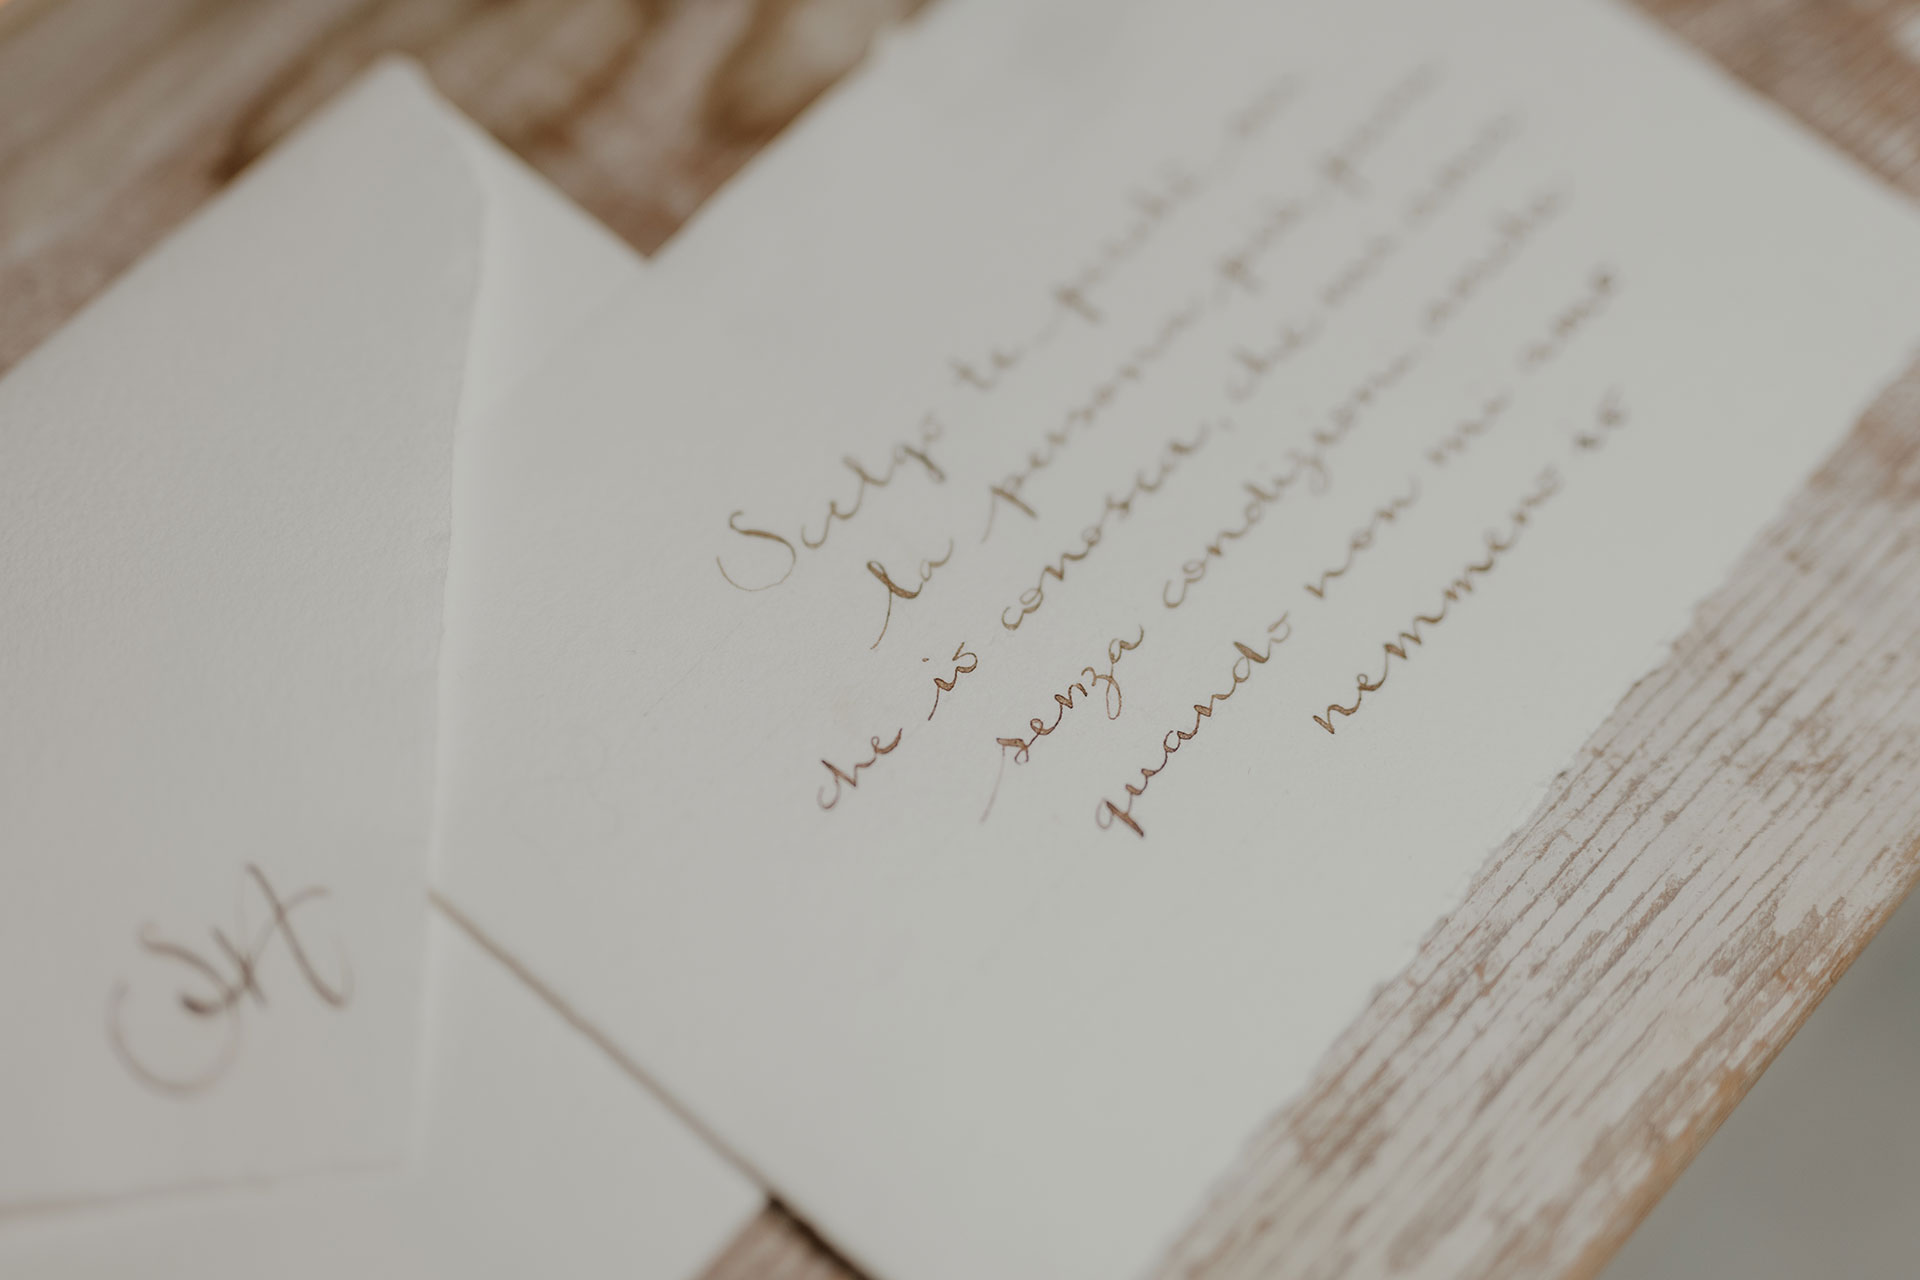 Scelgo te perchè sei
la persona più pura
che io conosca, che mi ama
senza condizioni anche
quando non mi amo
nemmeno io